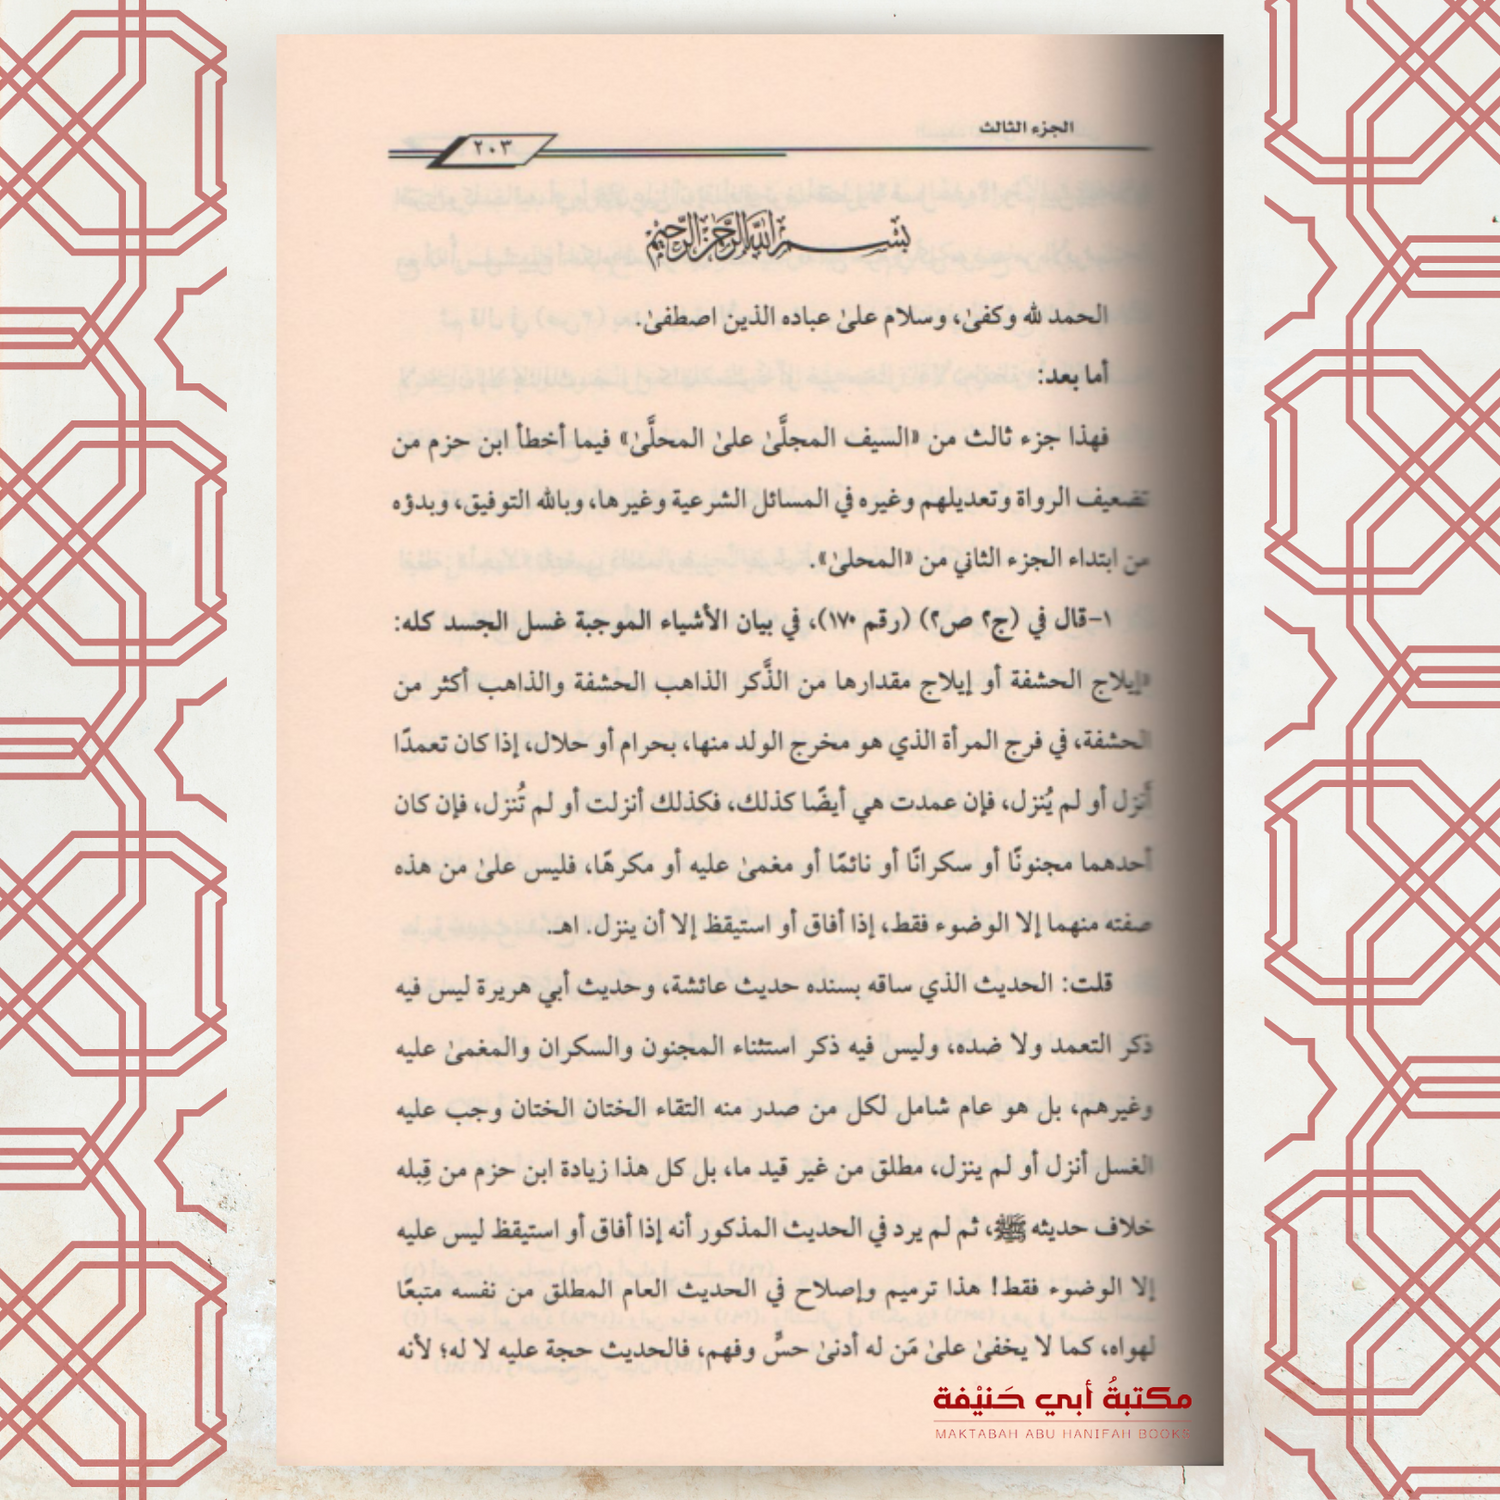 الجزء الثالث
٢٠٣
بسم الله الرحمن الرحيم
الحمد لله وكفىٰ، وسلام علىٰ عباده الذين اصطفىٰ.
أما بعد:
فهذا جزء ثالث من «السيف المجلَّىٰ علىٰ المحلَّىٰ» فيما أخطأ ابن حزم من
تضعيف الرواة وتعديلهم وغيره في المسائل الشرعية وغيرها، وبالله التوفيق، وبدؤه
من ابتداء الجزء الثاني من «المحلىٰ».
١-قال في (ج٢ ص٢) (رقم ١٧٠)، في بيان الأشياء الموجبة غسل الجسد كله:
«إيلاج الحشفة أو إيلاج مقدارها من الذَّكر الذاهب الحشفة والذاهب أكثر من
الحشفة، في فرج المرأة الذي هو مخرج الولد منها، بحرام أو حلال، إذا كان تعمدًا
أنزل أو لم يُنزل، فإن عمدت هي أيضًا كذلك، فكذلك أنزلت أو لم تُنزل، فإن كان
أحدهما مجنونًا أو سكرانًا أو نائمًا أو مغمىٰ عليه أو مكرهًا، فليس علىٰ من هذه
صفته منهما إلا الوضوء فقط، إذا أفاق أو استيقظ إلا أن ينزل. اهـ.
قلت: الحديث الذي ساقه بسنده حديث عائشة، وحديث أبي هريرة ليس فيه
ذكر التعمد ولا ضده، وليس فيه ذكر استثناء المجنون والسكران والمغمىٰ عليه
وغيرهم، بل هو عام شامل لكل من صدر منه التقاء الختان الختان وجب عليه
الغسل أنزل أو لم ينزل، مطلق من غير قيد ما، بل كل هذا زيادة ابن حزم من قِبله
خلاف حديثه ﷺ، ثم لم يرد في الحديث المذكور أنه إذا أفاق أو استيقظ ليس عليه
إلا الوضوء فقط! هذا ترميم وإصلاح في الحديث العام المطلق من نفسه متبعًا
لهواه، كما لا يخفىٰ علىٰ مَن له أدنىٰ حسٍّ وفهم، فالحديث حجة عليه لا له؛ لأنه
مكتبةُ أبي حَنيْفة
MAKTABAH ABU HANIFAH BOOKS